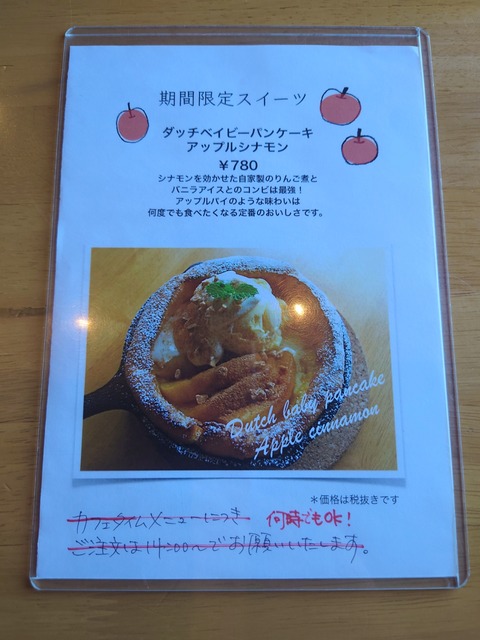 期間限定スイーツ
ダッチベイビーパンケーキ
アップルシナモン
￥780
シナモンを効かせた自家製のりんご煮と
バニラアイスとのコンビは最強！
アップルパイのような味わいは
何度でも食べたくなる定番のおいしさです。
Dutch baby pancake
Apple cinnamon
＊価格は税抜きです
カフェタイムメニューにつき 何時でもOK!
ご注文は14:00〜でお願いいたします。